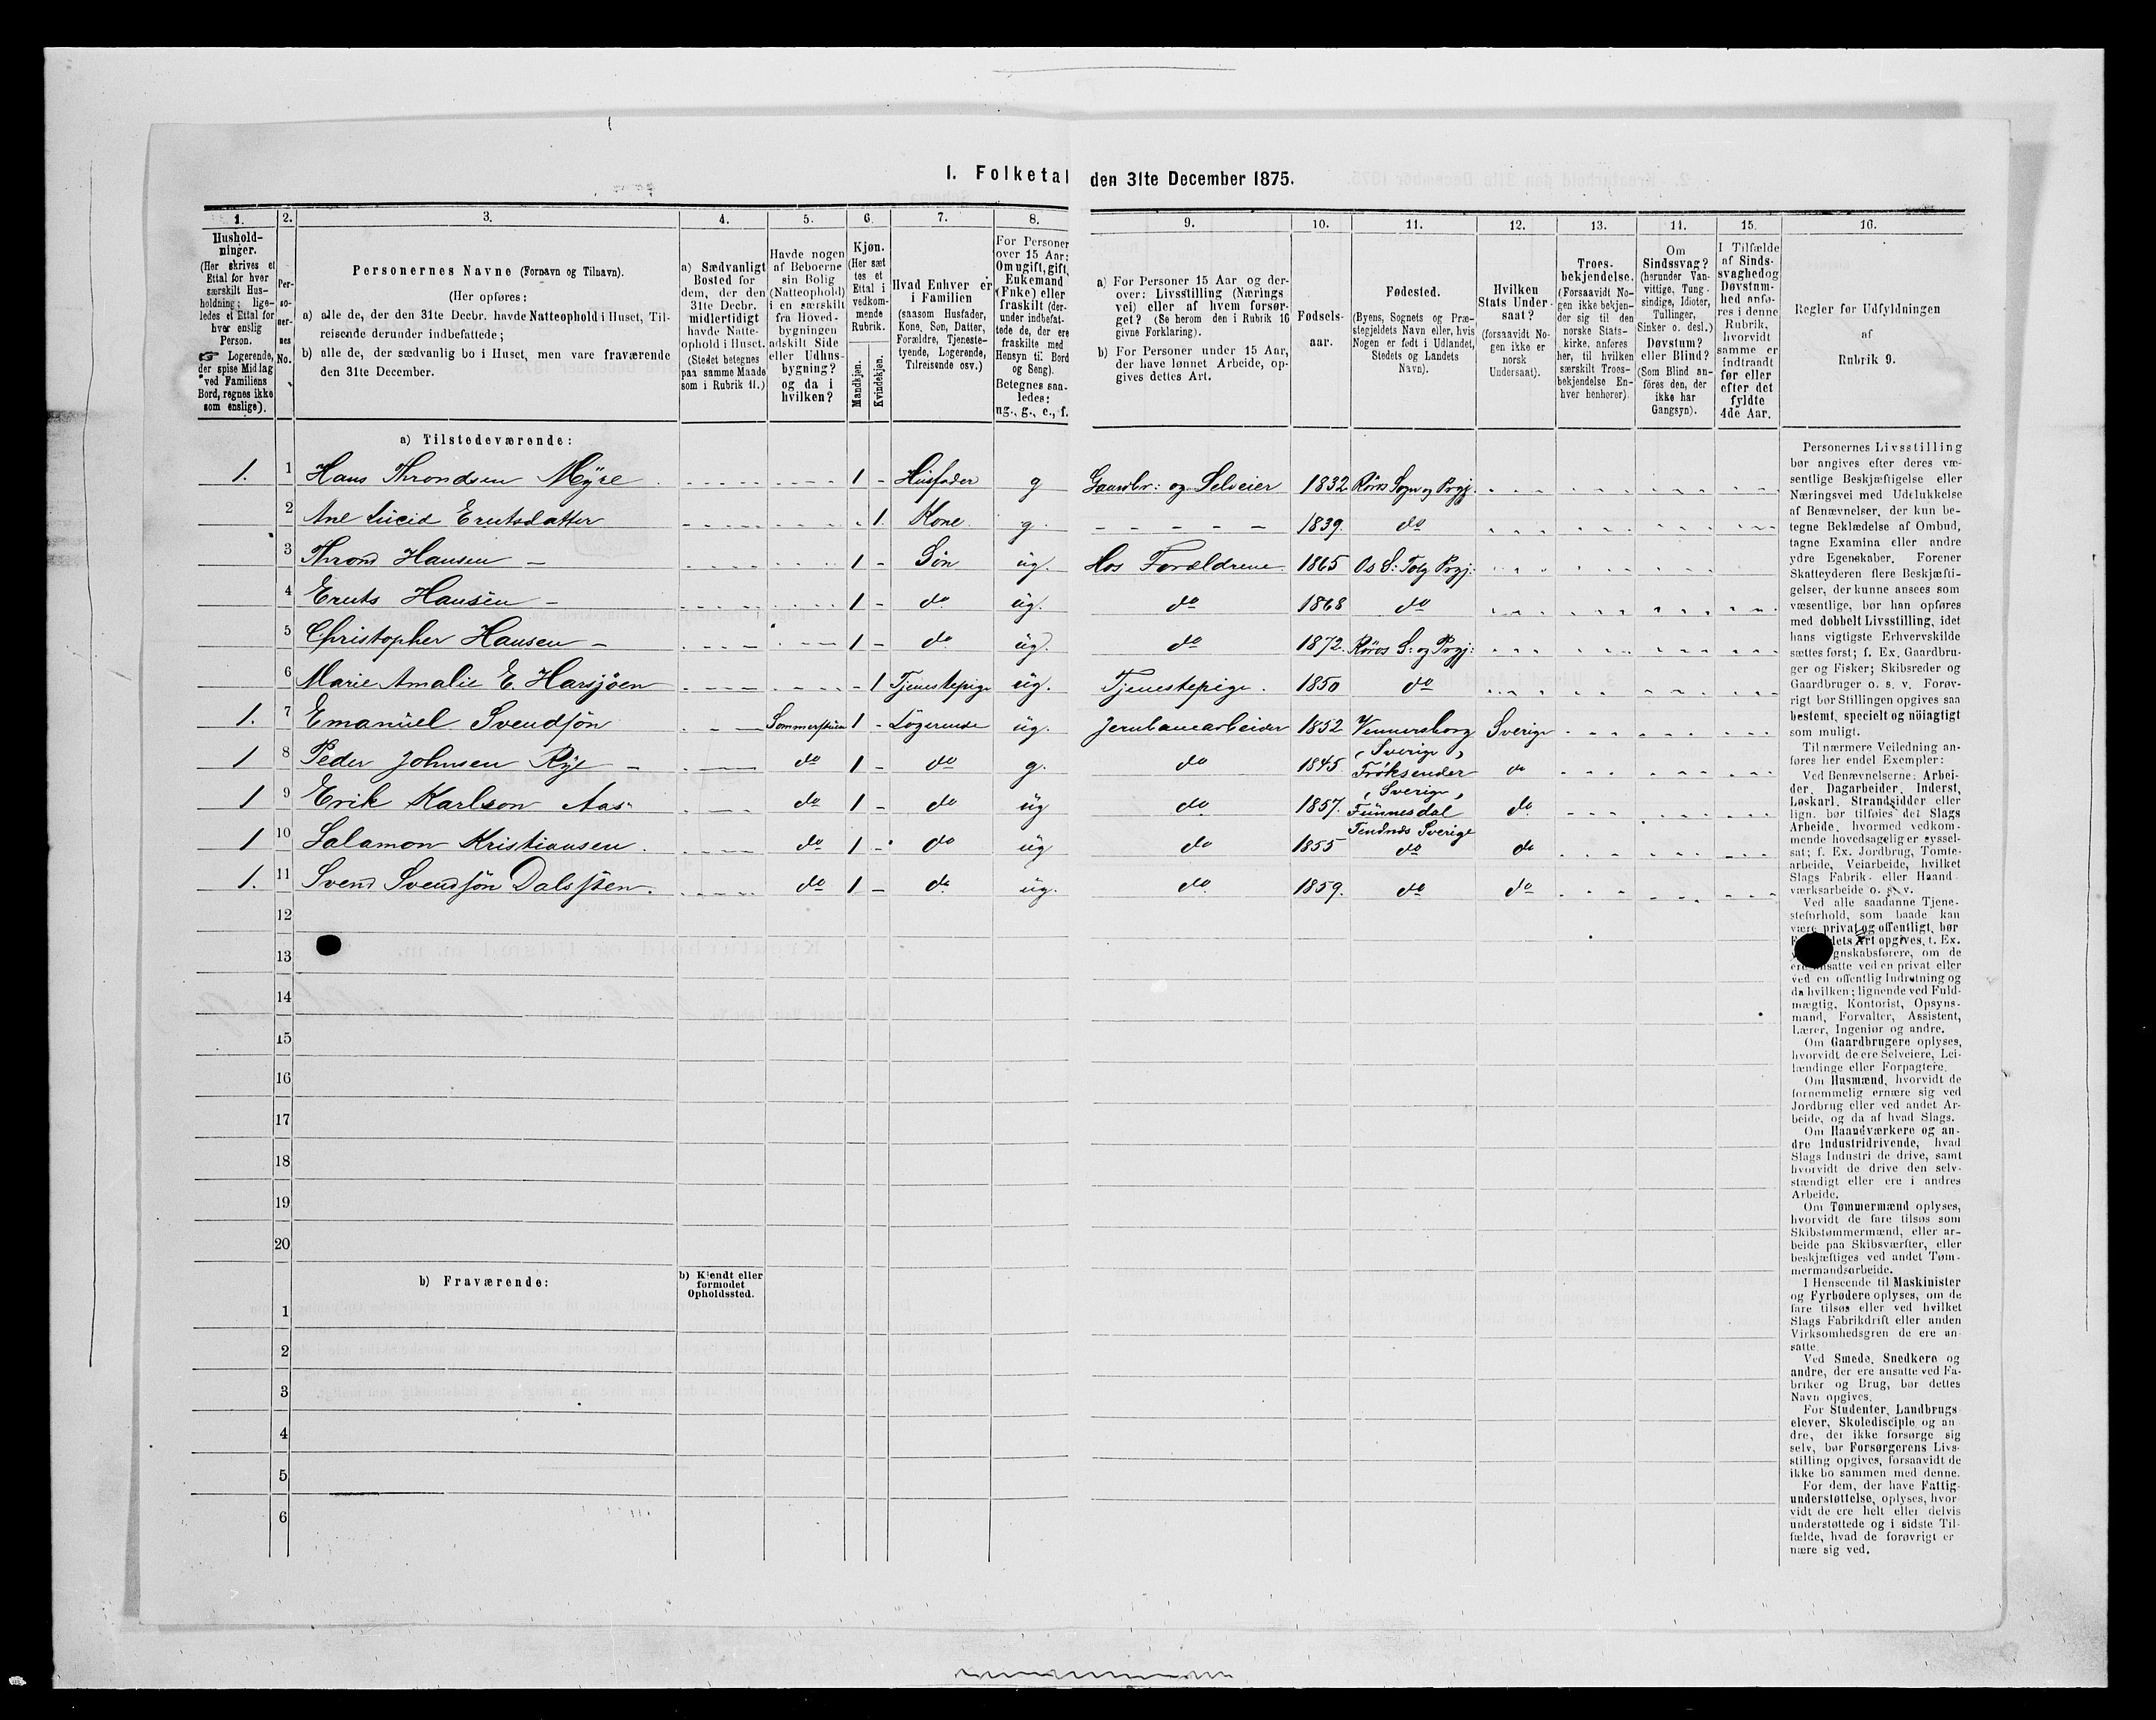 1. Folketal den 31te December 1875.
1. 2. 3. 4. 5. 6. 7. 8. 9. 10. 11. 12. 13. 14. 15. 16.
Hushold-
ninger.
(Her skrives et
Ettal for hver
særskilt Hus-
holdning; lige-
ledes et Ettal for
hver enslig
Person.
☞ Logerende,
der spise Middag
ved Familiens
Bord, regnes ikke
som enslige).
Per-
so-
ner-
nes
No.
Personernes Navne (Fornavn og Tilnavn).
(Her opføres:
a) alle de, der den 31te Decbr. havde Natteophold i Huset, Til-
reisende derunder indbefattede;
b) alle de, der sædvanlig bo i Huset, men vare fraværende
den 31te December.
a) Sædvanligt
Bosted for
dem, der den
31te Decbr.
midlertidigt
havde Natte-
ophold i Huset.
(Stedet betegnes
paa samme Maade
som i Rubrik 11.)
Havde nogen
af Beboerne
sin Bolig
(Natteophold)
i en særskilt
fra Hoved-
bygningen
adskilt Side
eller Udhus-
bygning?
og da i
hvilken?
Kjøn.
(Her sæt
tes et
Ettal i
vedkom-
mende
Rubrik.
Mandkjøn.
Kvindekjøn.
Hvad Enhver er
i Familien
(saasom Husfader,
Kone, Søn, Datter,
Forældre, Tjeneste-
tyende, Logerende,
Tilreisende osv.)
For Personer
over 15 Aar:
Om ugift, gift,
Enkemand
(Enke) eller
fraskilt (der-
under indbefat-
tede de, der ere
fraskilte med
Hensyn til Bord
og Seng).
Betegnes saa-
ledes:
ug., g., e., f.
a) For Personer 15 Aar og der-
over: Livsstilling (Nærings
vei) eller af hvem forsør-
get? (Se herom den i Rubrik 16
givne Forklaring).
b) For Personer under 15 Aar,
der have lønnet Arbeide, op-
gives dettes Art.
Fødsels-
aar.
Fødested.
(Byens, Sognets og Præ-
stegjeldets Navn eller, hvis
Nogen er født i Udlandet,
Stedets og Landets
Navn).
Hvilken
Stats Under-
saat?
(forsaavidt No-
gen ikke er
norsk
Undersaat).
Troes-
bekjendelse.
(Forsaavidt No-
gen ikke bekjen-
der sig til den
norske Stats-
kirke, anføres
her, til hvilken
særskilt Troes-
bekjendelse En-
hver henhører).
Om
Sindssvag?
(herunder Van-
vittige, Tung-
sindige, Idioter,
Tullinger,
Sinker o. desl.)
Døvstum?
eller Blind?
(Som Blind an-
føres den, der
ikke har
Gangsyn).
I Tilfælde
af Sinds-
svaghed og
Døvstum-
hed anfø-
res i denne
Rubrik,
hvorvidt
samme er
indtraadt
før eller
efter det
fyldte
4de Aar.
Regler for Udfyldningen
af
Rubrik 9.
a) Tilstedeværende:
1. 1 Hans Throndsen Myre 1 - Husfader g Gaardbr: og Selveier 1832 Røros Sogn og Prgj.
2 Ane Lucid Erutsdatter 1. Kone. g. 1839. do
3 Thrond Hansen - 1 - Søn ug. Hos Forældrene 1865 Os S: Tolg Prgj:
4 Eruts Hansen - 1 - do. ug. do 1868 do
5 Christopher Hansen - 1 - do. ug. do 1872. Røros S: og Prgj:
6 Marie Amalie E. Harsjøen - 1 Tjenestepige ug. Tjenestepige. 1850 do
1. 7 Emanuel Svendsøn Sommerstuen 1 - Logerende ug. Jernbanearbeider 1852 Vennersborg Sverige
1 8 Peder Johnsen Rye - do 1 - do g. do 1845. (Sverige) Frøksender do
1 9 Erik Karlson Aas do 1 - do ug do. 1857. (Sverige) Funnesdal do.
1 10 Salamon Kristiansen. do 1 - do ug do 1855 Sverige do do
1. 11 Svend Svendsøn do 1 - do. ug. do. 1859. do do
12
13
14
15
16
17
18
19
20
b) Fraværende:
b) Kjendt eller
formodet
Opholdssted.
1
2
3
4
5
6
Personernes Livsstilling
bør angives efter deres væ-
sentlige Beskjæftigelse eller
Næringsvei med Udelukkelse
af Benævnelser, der kun be-
tegne Beklædelse af Ombud,
tagne Examina eller andre
ydre Egenskaber. Forener
Skatteyderen flere Beskjæfti-
gelser, der kunne ansees som
væsentlige, bør han opføres
med dobbelt Livsstilling, idet
hans vigtigste Erhvervskilde
sættes først; f. Ex. Gaardbru-
ger og Fisker; Skibsreder og
Gaardbruger o. s. v. Forøv-
rigt bør Stillingen opgives saa
bestemt, specielt og nøiagtigt
som muligt.
Til nærmere Veiledning an-
føres her endel Exempler:
Ved Benævnelserne: Arbei-
der, Dagarbeider, Inderst,
Løskarl, Strandsidder eller
lign. bør tilføies det Slags
Arbeide, hvormed vedkom-
mende hovedsagelig er syssel-
sat; f. Ex. Jordbrug, Tomte-
arbeide, Veiarbeide, hvilket
Slags Fabrik- eller Haand-
værksarbeide o. s. v.
Ved alle saadanne Tjene-
steforhold, som baade kan
være privat og offentligt, bør
dets Art opgives, f. Ex.
gnskabsførere, om de
ere ansatte ved en privat eller
ved en offentlig Indretning og
da hvilken; lignende ved Fuld-
mægtig, Kontorist, Opsyns-
mand, Forvalter, Assistent,
Lærer, Ingeniør og andre.
Om Gaardbrugere oplyses,
hvorvidt de ere Selveiere, Lei-
lændinge eller Forpagtere.
Om Husmænd, hvorvidt de
fornemmelig ernære sig ved
Jordbrug eller ved andet Ar-
beide, og da af hvad Slags.
Om Haandværkere og an-
dre Industridrivende, hvad
Slags Industri de drive, samt
hvorvidt de drive den selv-
stændigt eller ere i andres
Arbeide.
Om Tømmermænd oplyses,
hvorvidt de fare tilsøs som
Skibstømmermænd, eller ar-
beide paa Skibsværfter, eller
beskjæftiges ved andet Tøm-
mermandsarbeide.
I Henseende til Maskinister
og Fyrbødere oplyses, om de
fare tilsøs eller ved hvilket
Slags Fabrikdrift eller anden
Virksomhedsgren de ere an-
satte.
Ved Smede, Snedkere og
andre, der ere ansatte ved Fa-
briker og Brug, bør dettes
Navn opgives.
For Studenter, Landbrugs-
elever, Skoledisciple og an-
dre, der ikke forsørge sig
selv, bør Forsørgerens Livs-
stilling opgives, forsaavidt de
ikke bo sammen med denne.
For dem, der have Fattig-
understøttelse, oplyses, hvor-
vidt de ere helt eller delvis
understøttede og i sidste Til-
fælde, hvad de forøvrigt er-
nære sig ved.